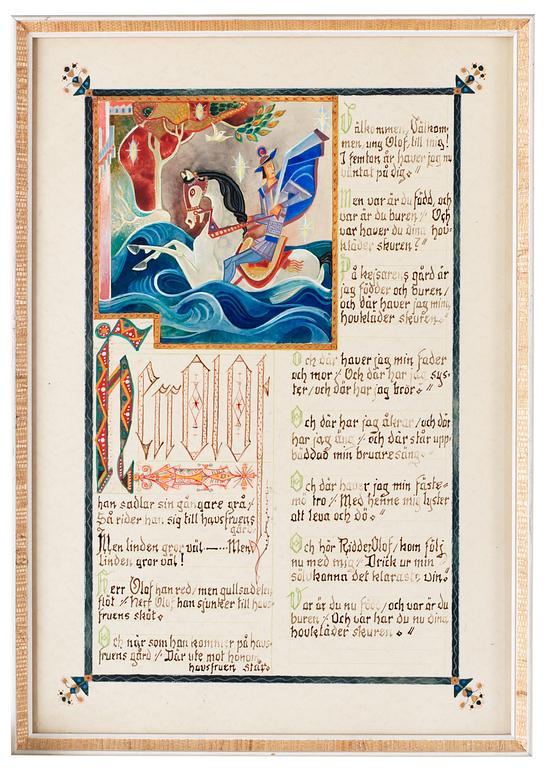 Herr Olof
han sadlar sin gångare grå ⁒
Så rider han sig till havsfruens
gård
Men linden gror väl — Men
linden gror väl!
Herr Olof han red, men gullsadelen
flöt ⁒ Herr Olof han sjunker till havs-
fruens sköt.
Och när som han kommer på havs-
fruens gård ⁒ Där ute mot honom
havsfruen står.
Välkommen, Välkom-
men, ung Olof, till mig!
I femton år haver jag nu
väntat på dig."
Men var är du född, och
var är du buren ⁒ Och
var haver du dina hov-
kläder skuren?"
På kejsarens gård är
jag födder och buren/
och där haver jag mina
hovkläder skuren."
Och där haver jag min fader
och mor ⁒ Och där har jag sys-
ter/ och där har jag bror."
Och där har jag åkrar/ och där
har jag äng ⁒ och där står upp-
bäddad min bruaresäng.
Och där haver jag min fäste-
mö tro ⁒ Med henne mig lyster
att leva och dö."
Och hör Ridder Olof/ kom följ
nu med mig ⁒ Drick ur min
silvkanna det klaraste vin."
Var är du nu född/ och var är du
buren ⁒ Och var har du nu dina
hovkläder skuren."